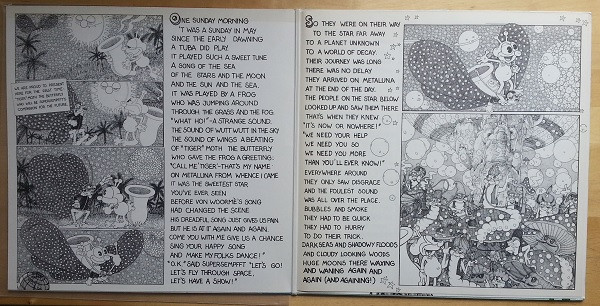 ONE SUNDAY MORNING
'T WAS A SUNDAY IN MAY
SINCE THE EARLY DAWNING
A TUBA DID PLAY.
IT PLAYED SUCH A SWEET TUNE
A SONG OF THE SEA
OF THE STARS AND THE MOON
AND THE SUN AND THE SEA.
IT WAS PLAYED BY A FROG
WHO WAS JUMPING AROUND
THROUGH THE GRASS AND THE FOG.
"WHAT HO!"-A STRANGE SOUND.
THE SOUND OF WUTT WUTT IN THE SKY
THE SOUND OF WINGS A BEATING
OF "TIGER" MOTH THE BUTTERFLY
WHO GAVE THE FROG A GREETING:
"CALL ME TIGER"-THAT'S MY NAME
ON METALUNA FROM WHENCE I CAME
IT WAS THE SWEETEST STAR
YOU'VE EVER SEEN
BEFORE VON WOORME'S SONG
HAD CHANGED THE SCENE
HIS DREADFUL SONG JUST GIVES US PAIN
BUT HE IS AT IT AGAIN AND AGAIN.
COME YOU WITH ME GIVE US A CHANCE
SING YOUR HAPPY SONG
AND MAKE MY FOLKS DANCE!"
"O.K." SAID SUPERSEMPFFT "LET'S GO!
LET'S FLY THROUGH SPACE,
LET'S HAVE A SHOW!"
WE ARE PROUD TO PRESENT
HERE FOR THE FIRST TIME:
TIGER MOTH THE BUTTERFLY
WHO WILL BE
COMPANION FOR THE FUTURE
SO THEY WERE ON THEIR WAY
TO THE STAR FAR AWAY
TO A PLANET UNKNOWN
TO A WORLD OF DECAY.
THEIR JOURNEY WAS LONG
THERE WAS NO DELAY
THEY ARRIVED ON METALUNA
AT THE END OF THE DAY.
THE PEOPLE ON THE STAR BELOW
LOOKED UP AND SAW THEM THERE
THAT'S WHEN THEY KNEW
"IT'S NOW OR NOWHERE!"
"WE NEED YOUR HELP
WE NEED YOU SO
WE NEED YOU MORE
THAN YOU'LL EVER KNOW!"
EVERYWHERE AROUND
THEY ONLY SAW DISGRACE
AND THE FOULEST SOUND
WAS ALL OVER THE PLACE.
BUBBLES AND SMOKE
THEY HAD TO BE QUICK
THEY HAD TO HURRY
TO DO THEIR TRICK...
DARK SEAS AND SHADOWY FLOODS
AND CLOUDY LOOKING WOODS
HUGE MOONS THERE WAXING
AND WANING AGAIN AND
AGAIN (AND AGAINING!)